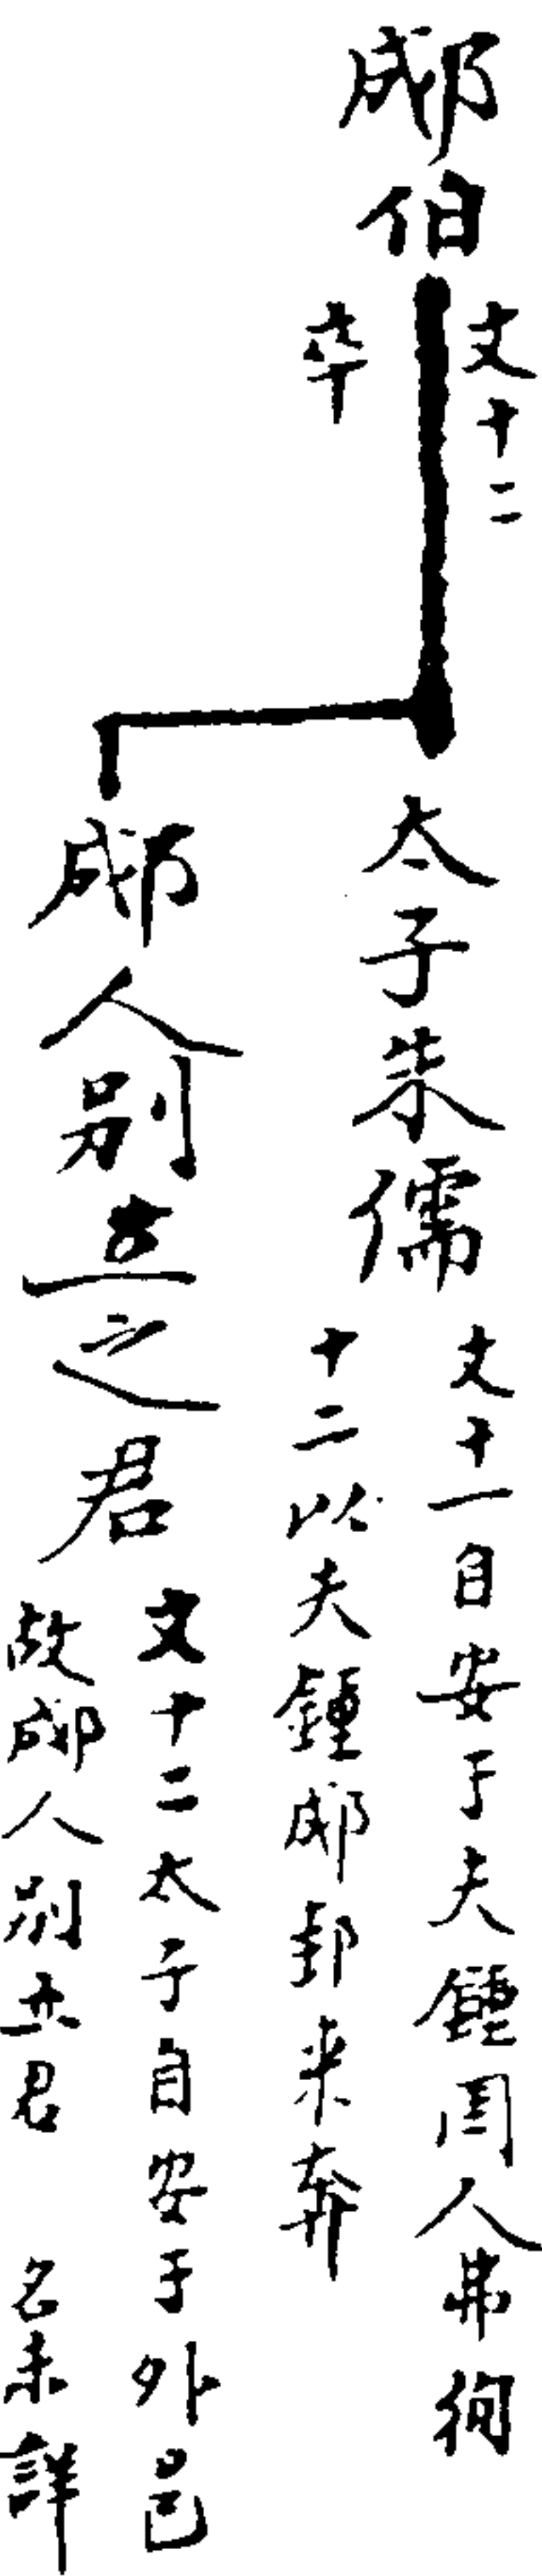 郕伯
文十二
卒
太子朱儒
文十一自安于夫鍾国人弗徇
十二以夫鍾郕邽来奔
郕人别立之君
文十二太子自安于外邑
故郕人别立君 名未詳